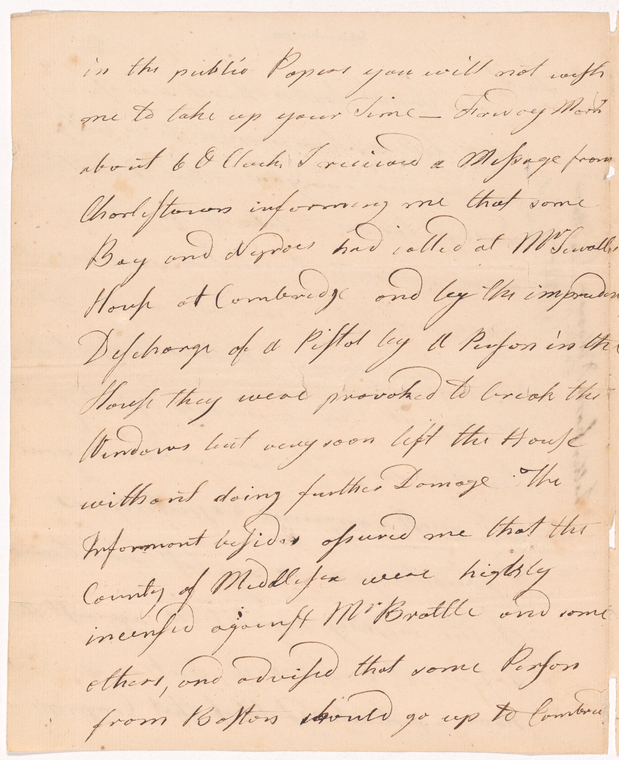 in the public Papers you will not wish
me to take up your Time — Fryday Morn
about 6 O Clock I received a Message from
Charlestown informing me that some
Boy and Negroes had called at Mr Sewalls
House at Cambridge and by the impruden
Discharge of a Pistol by a Person in the
House they were provoked to break the
Windows but very soon left the House
without doing further Damage The
Informant besides assured me that the
County of Middlesex were highly
incensed against Mr Brattle and some
others, and advised that some Person
from Boston should go up to Cambrid